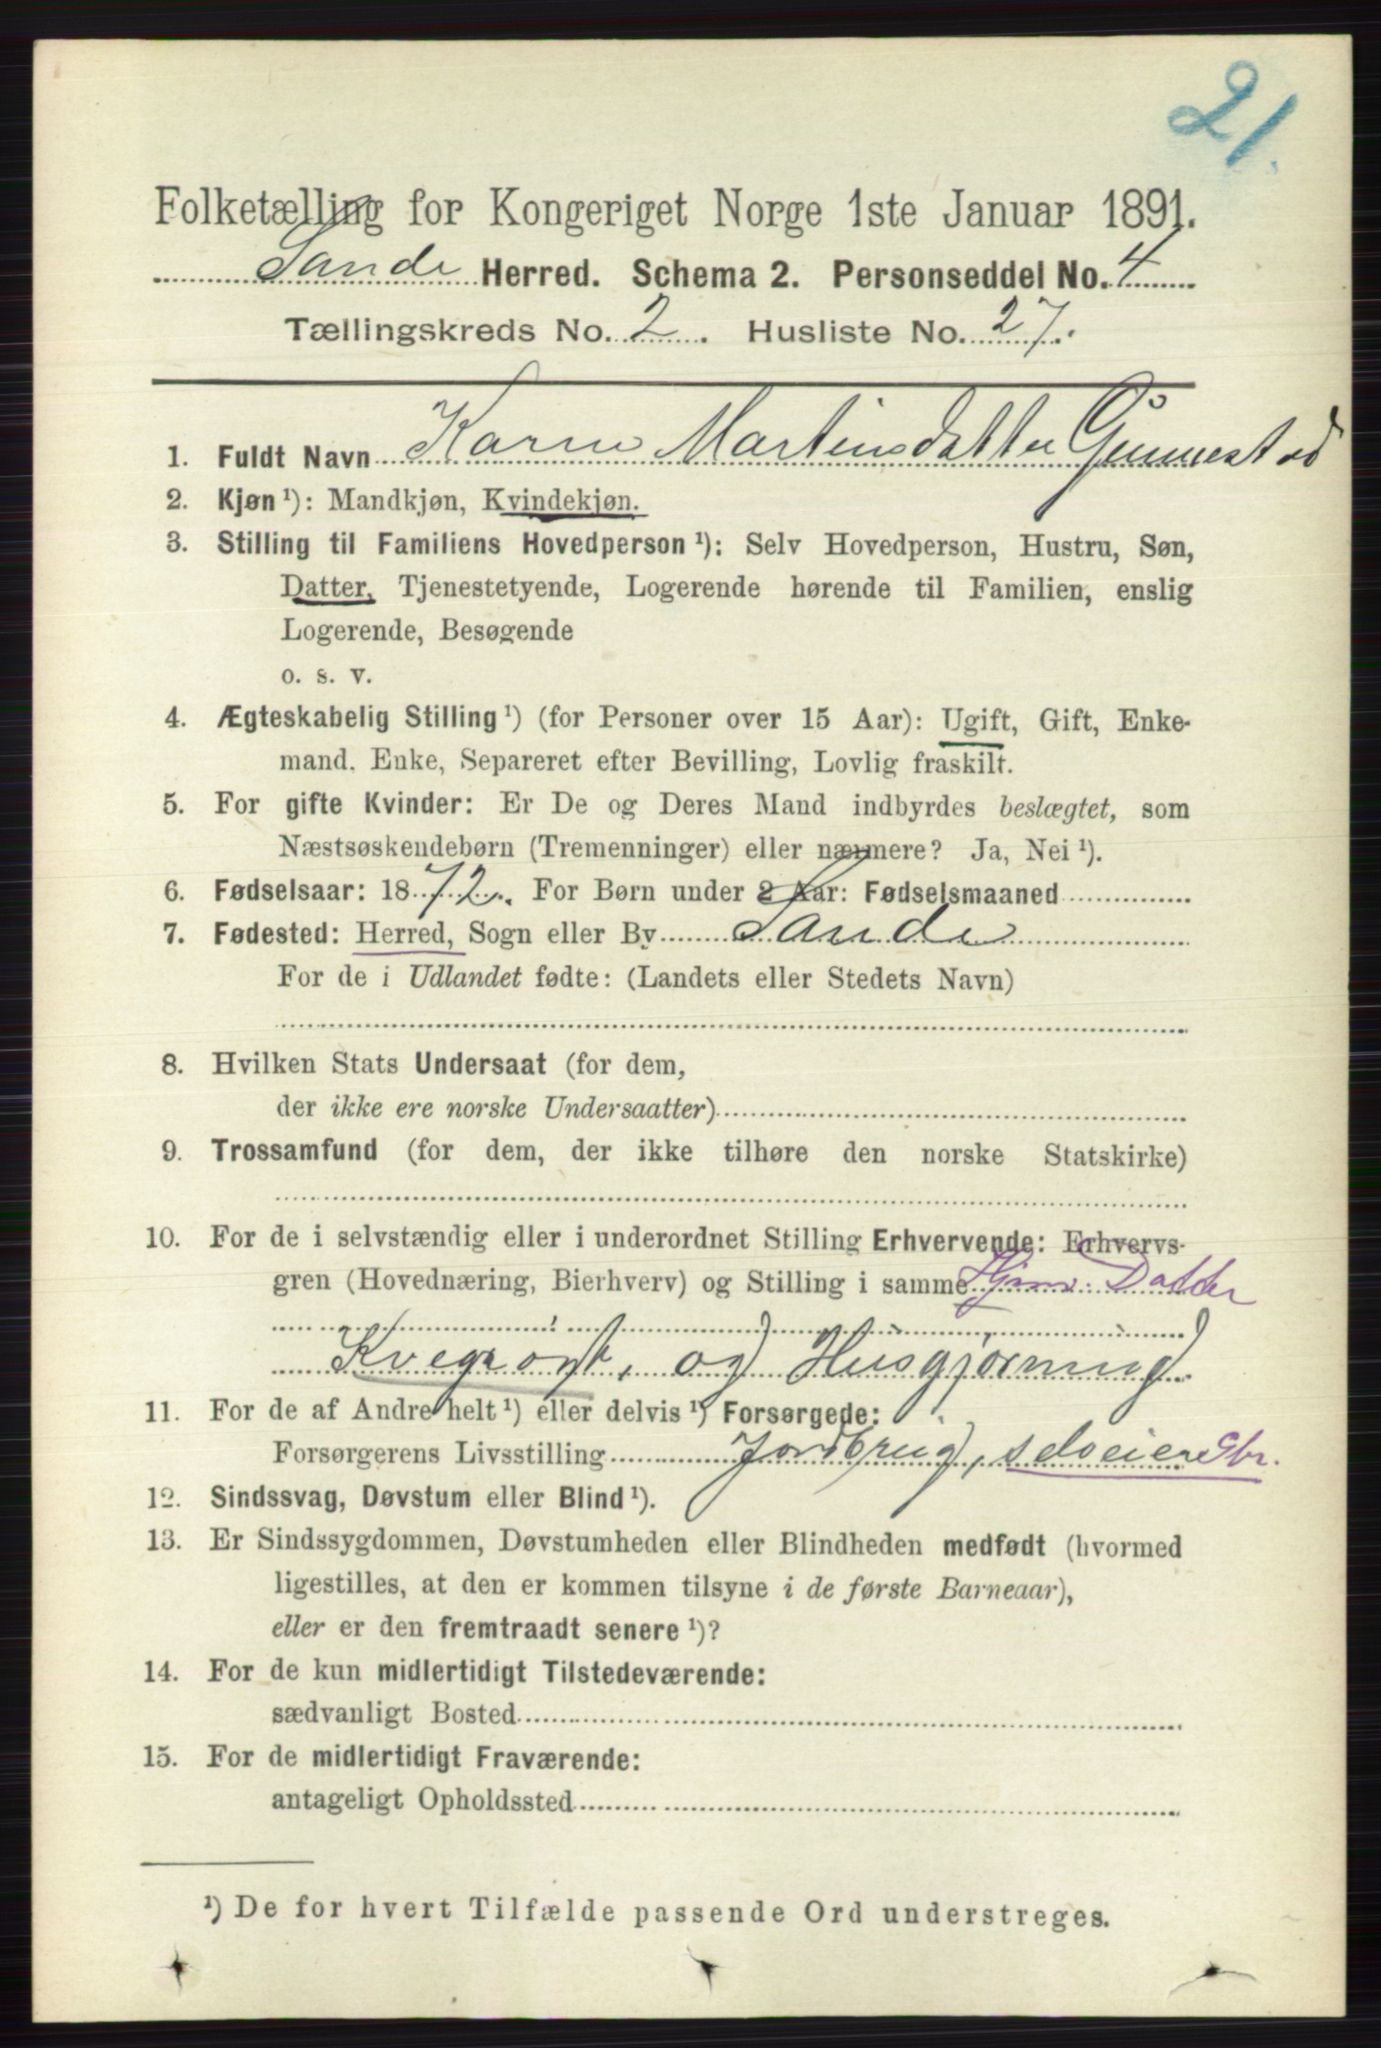 21.
Folketælling for Kongeriget Norge 1ste Januar 1891.
Sande Herred. Schema 2. Personseddel No. 4
Tællingskreds No. 2. Husliste No. 27.
1. Fuldt Navn Karen Martinsdatter Gunnestad
2. Kjøn ¹): Mandkjøn, Kvindekjøn.
3. Stilling til Familiens Hovedperson ¹): Selv Hovedperson, Hustru, Søn,
Datter, Tjenestetyende, Logerende hørende til Familien, enslig
Logerende, Besøgende
o. s. v.
4. Ægteskabelig Stilling ¹) (for Personer over 15 Aar): Ugift, Gift, Enke-
mand, Enke, Separeret efter Bevilling, Lovlig fraskilt.
5. For gifte Kvinder: Er De og Deres Mand indbyrdes beslægtet, som
Næstsøskendebørn (Tremenninger) eller nærmere? Ja, Nei ¹).
6. Fødselsaar: 1872. For Børn under 2 Aar: Fødselsmaaned
7. Fødested: Herred, Sogn eller By Sande
For de i Udlandet fødte: (Landets eller Stedets Navn)
8. Hvilken Stats Undersaat (for dem,
der ikke ere norske Undersaatter)
9. Trossamfund (for dem, der ikke tilhøre den norske Statskirke)
10. For de i selvstændig eller i underordnet Stilling Erhvervende: Erhvervs-
gren (Hovednæring, Bierhverv) og Stilling i samme Hjemv. Datter
Kvegrögt, og Husgjörning
11. For de af Andre helt ¹) eller delvis ¹) Forsørgede:
Forsørgerens Livsstilling Jordbrug, selveier Gbr.
12. Sindssvag, Døvstum eller Blind ¹).
13. Er Sindssygdommen, Døvstumheden eller Blindheden medfødt (hvormed
ligestilles, at den er kommen tilsyne i de første Barneaar),
eller er den fremtraadt senere ¹)?
14. For de kun midlertidigt Tilstedeværende:
sædvanligt Bosted
15. For de midlertidigt Fraværende:
antageligt Opholdssted
¹) De for hvert Tilfælde passende Ord understreges.